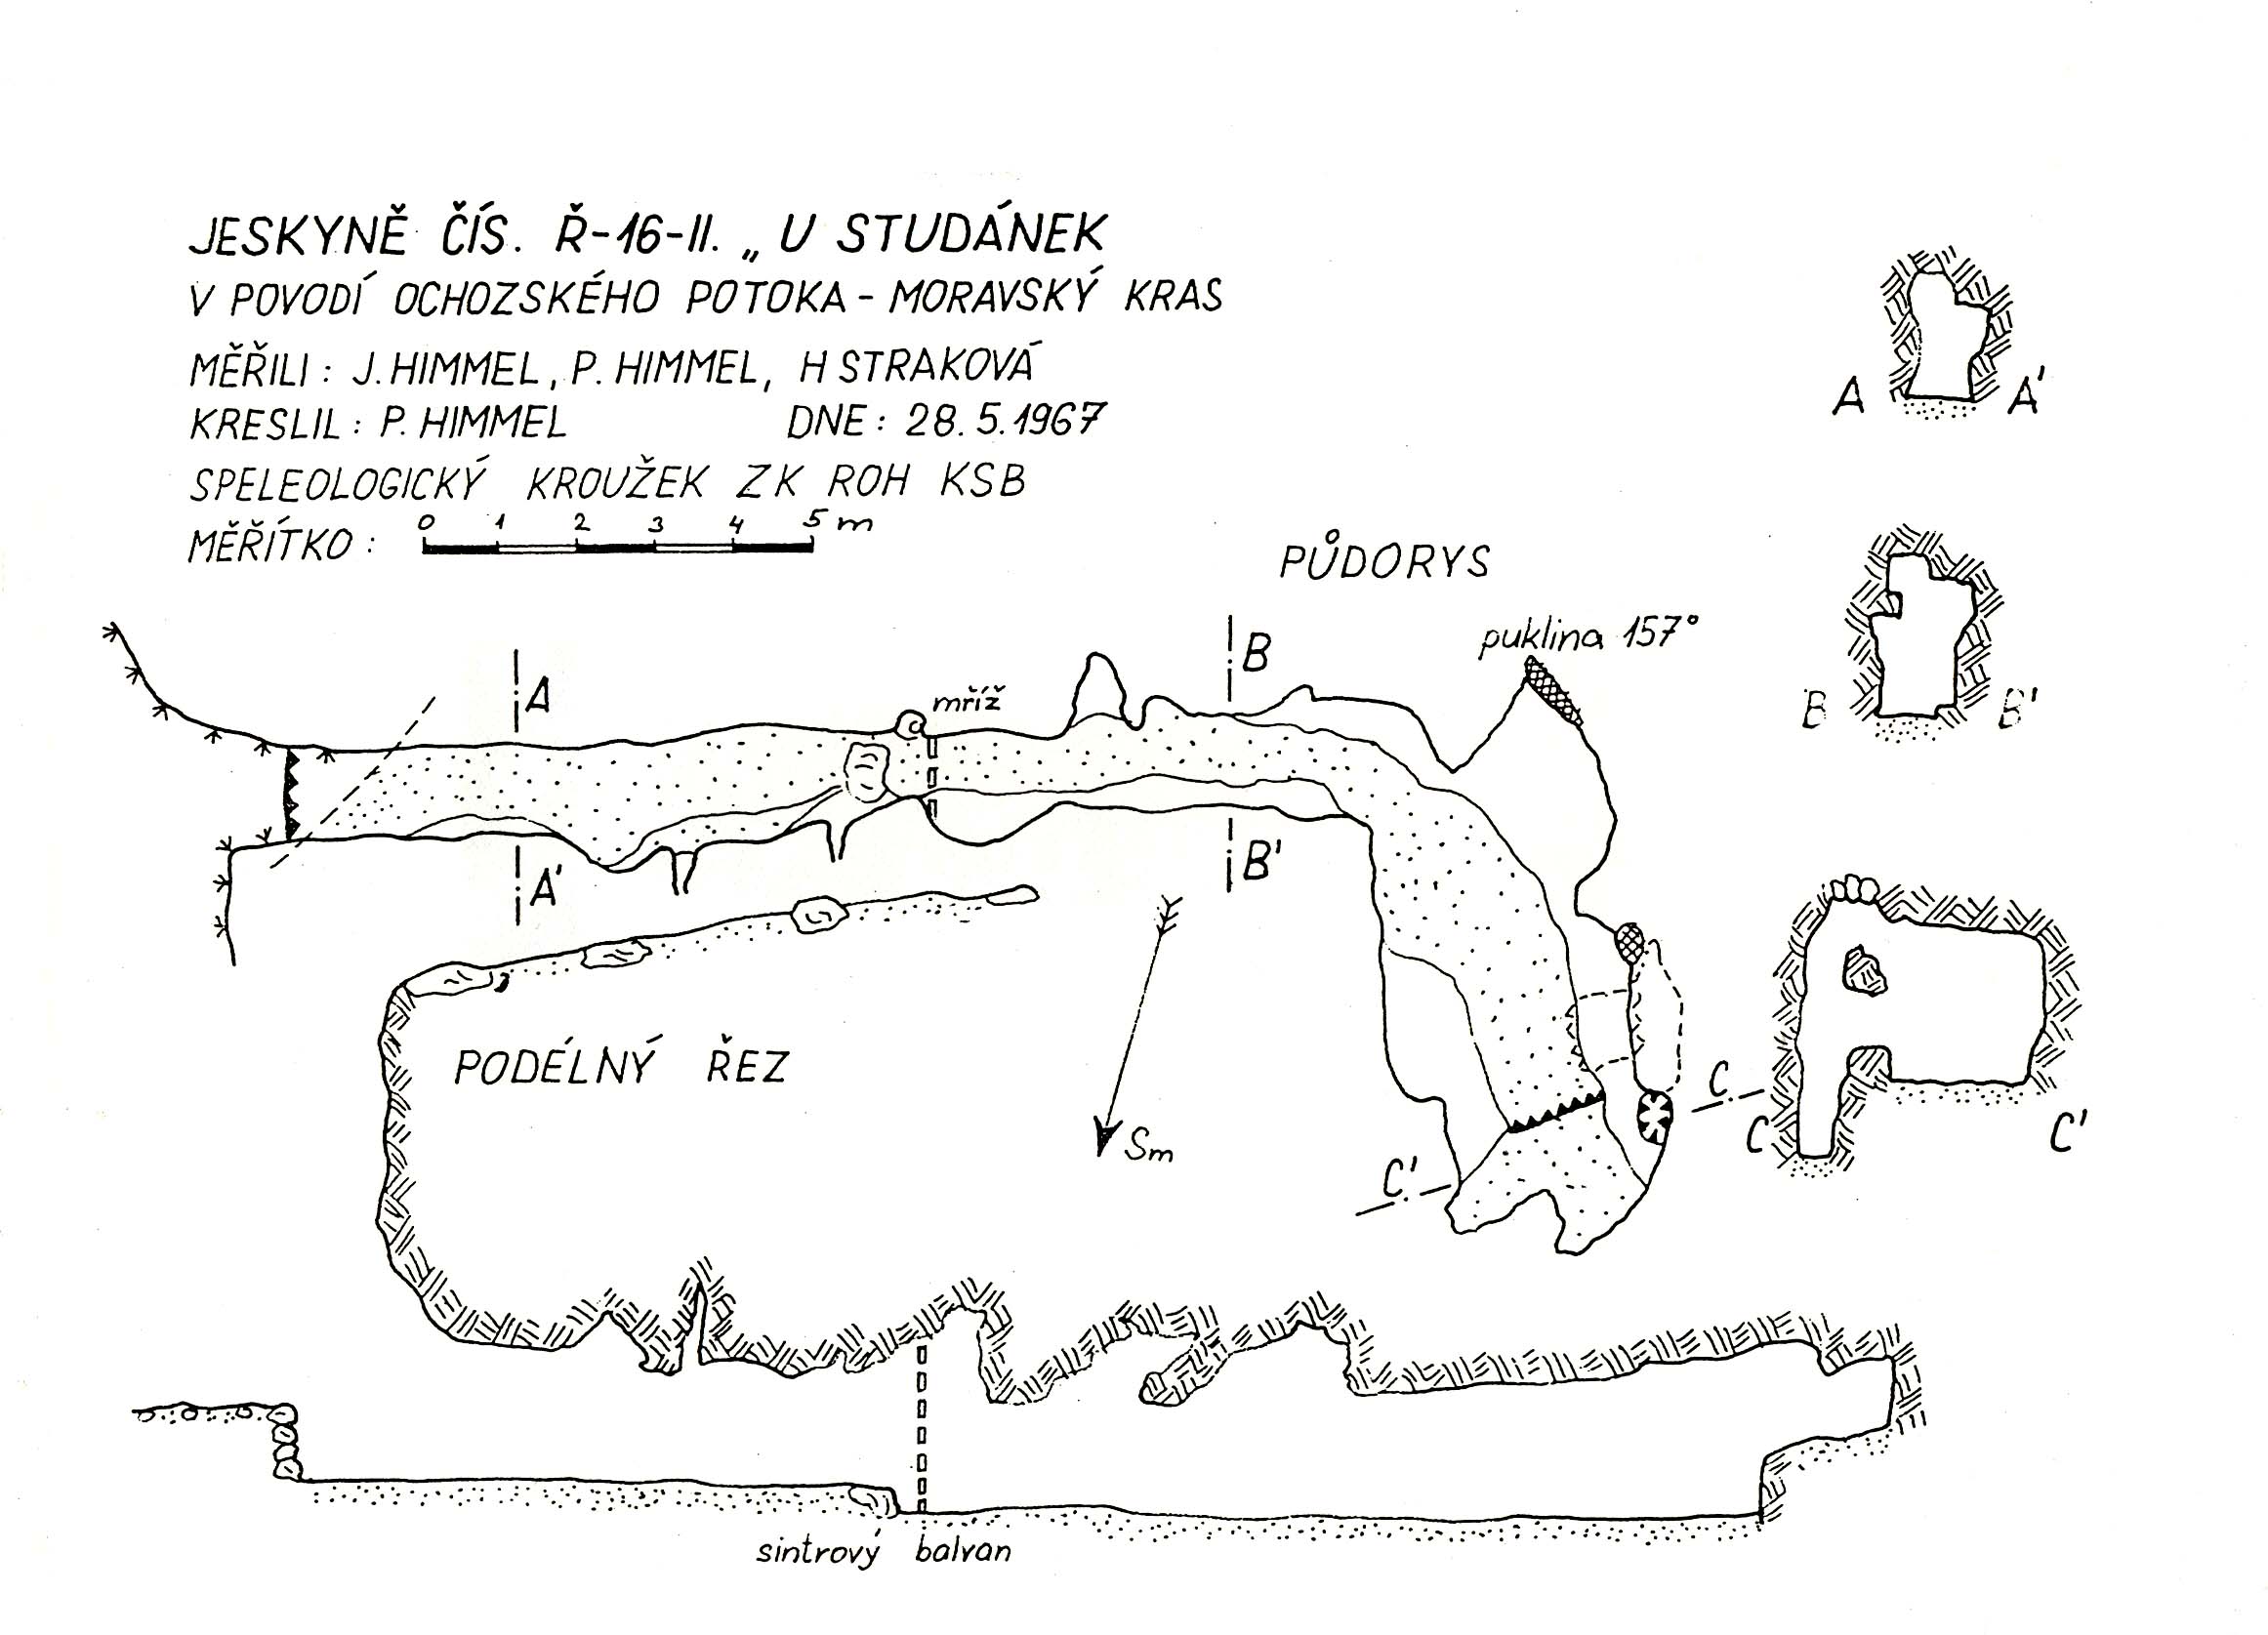 JESKYNĚ ČÍS. Ř-16-II. „U STUDÁNEK
V POVODÍ OCHOZSKÉHO POTOKA - MORAVSKÝ KRAS
MĚŘILI: J. HIMMEL, P. HIMMEL, H STRAKOVÁ
KRESLIL: P. HIMMEL DNE: 28. 5. 1967
SPELEOLOGICKÝ KROUŽEK ZK ROH KSB
MĚŘÍTKO: 0 1 2 3 4 5 m
A A'
PŮDORYS
puklina 157°
B B'
A
mříž
B
A'
B'
PODÉLNÝ ŘEZ
Sm
C
C'
C C'
sintrový balvan